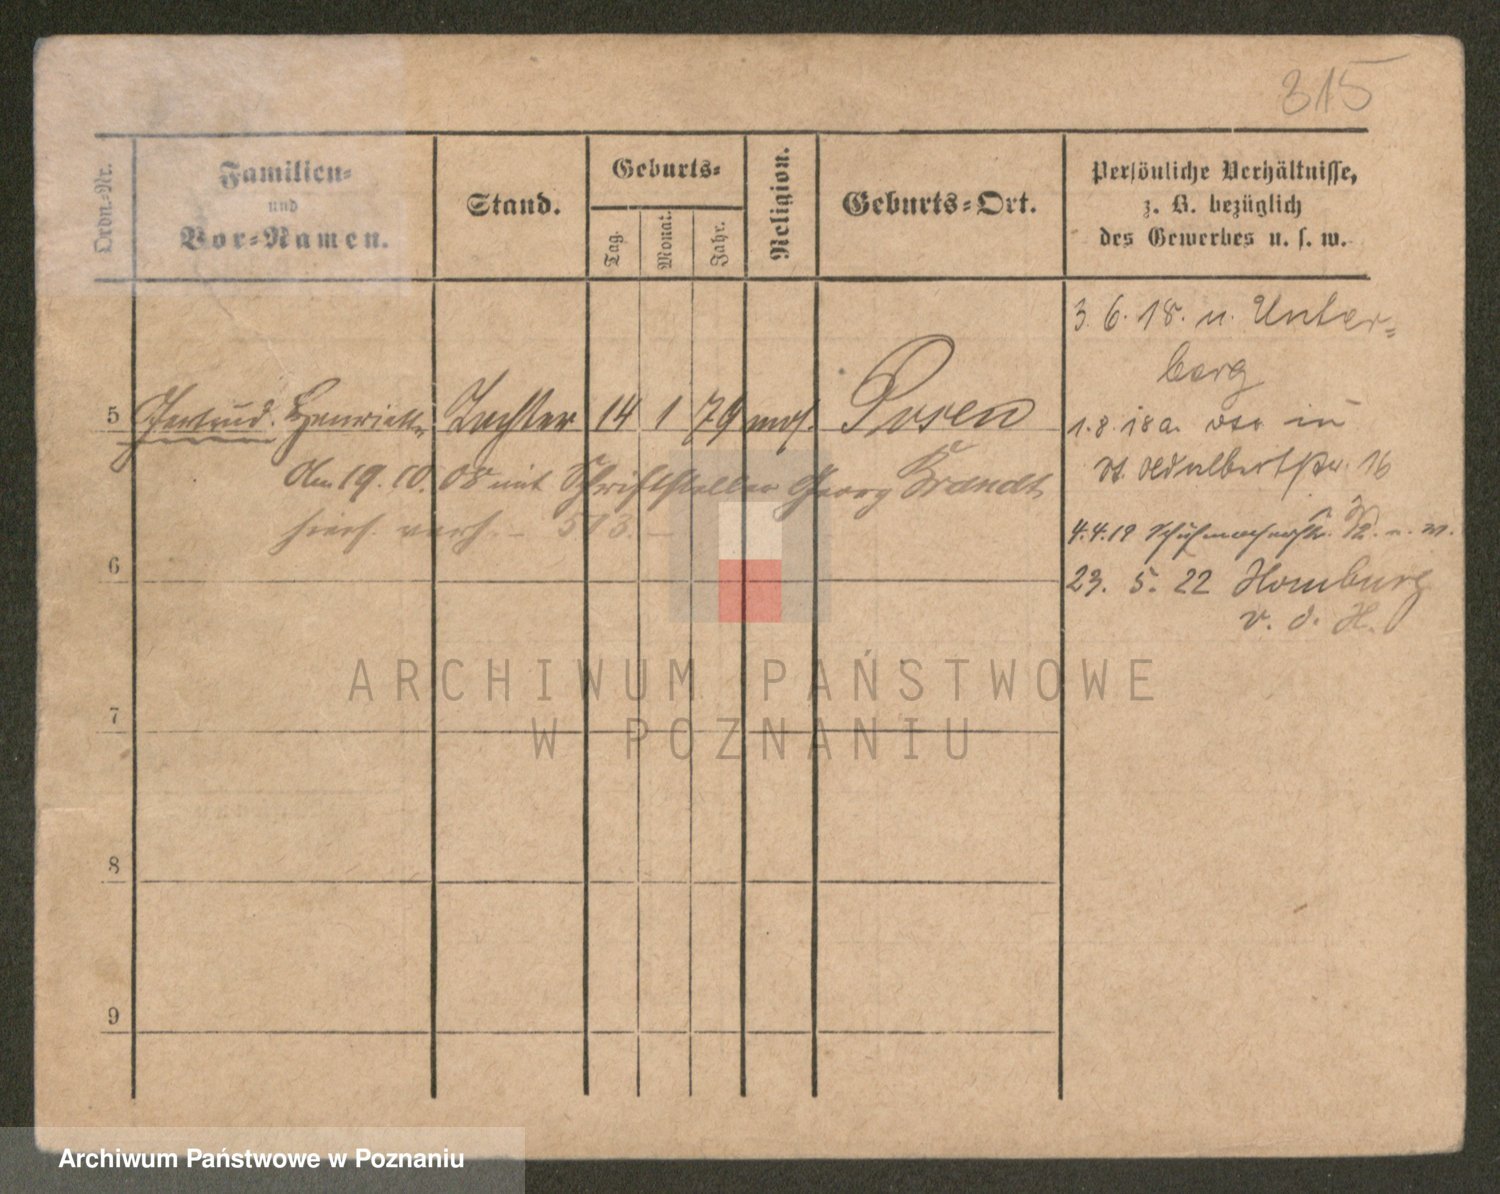 315
Ordn.-Nr.
Familien-
und
Vor-Namen.
Stand.
Geburts-
Tag.
Monat.
Jahr.
Religion.
Geburts-Ort.
Persönliche Verhältnisse,
z. B. bezüglich
des Gewerbes u. s. w.
3. 6. 18. n. Unter-
berg
5 Gertrud. Henriette Tochter 14 1 79 mos. Posen
1. 8. 18 a. in
St. Adalbertstr. 16
Am 19. 10. 08 mit Schriftsteller Georg Brandt
hier verh. - 513. -
4. 4. 19 Schuhmacherstr.
6
23. 5. 22 Homburg
v. d. H.
7
8
9
ARCHIWUM PAŃSTWOWE
W POZNANIU
Archiwum Państwowe w Poznaniu